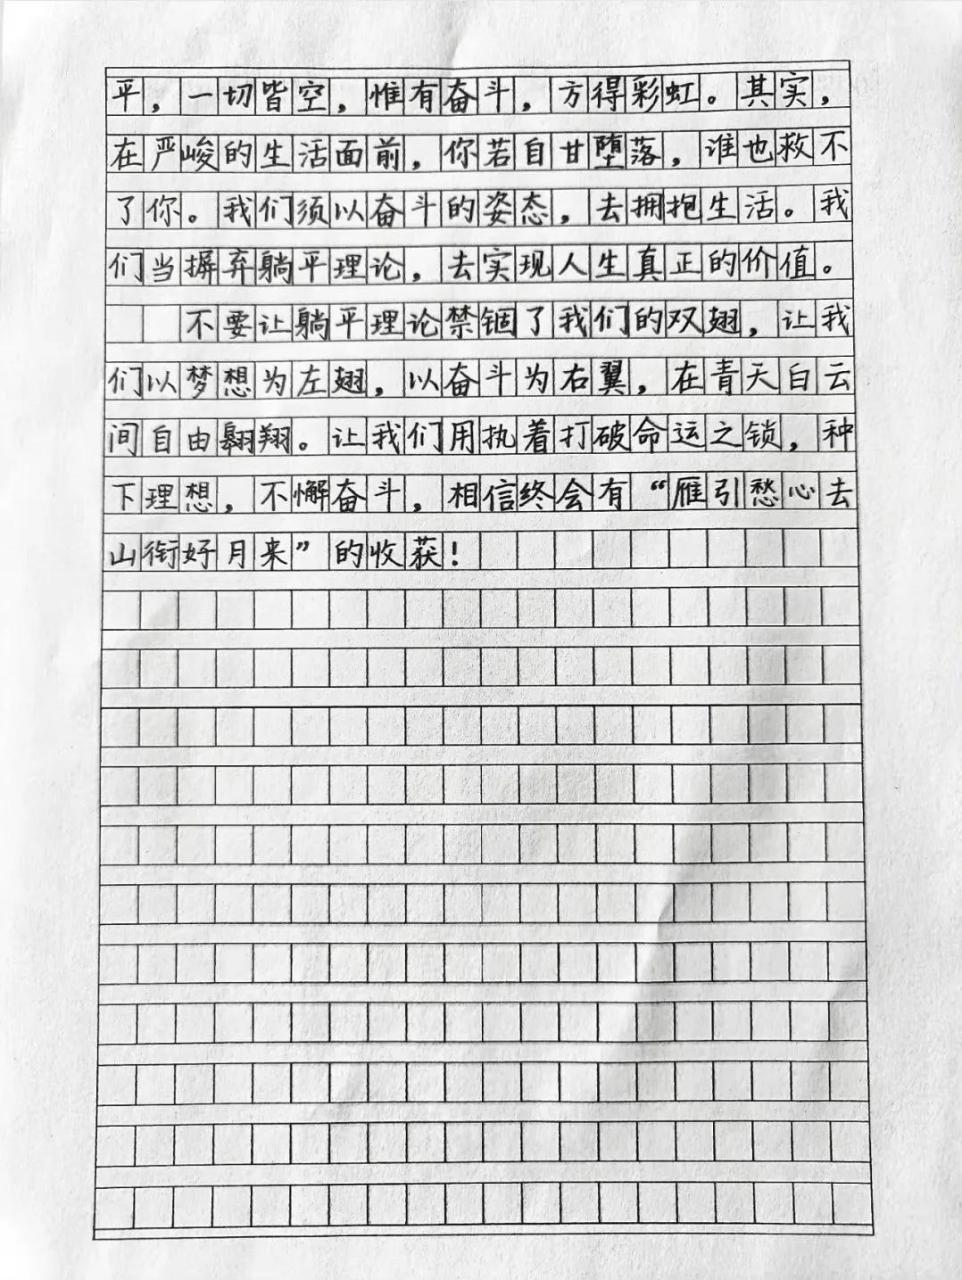 平，一切皆空，惟有奋斗，方得彩虹。其实，
在严峻的生活面前，你若自甘堕落，谁也救不
了你。我们须以奋斗的姿态，去拥抱生活。我
们当摒弃躺平理论，去实现人生真正的价值。
不要让躺平理论禁锢了我们的双翅，让我
们以梦想为左翅，以奋斗为右翼，在青天白云
间自由翱翔。让我们用执着打破命运之锁，种
下理想，不懈奋斗，相信终会有“雁引愁心去
山衔好月来”的收获！